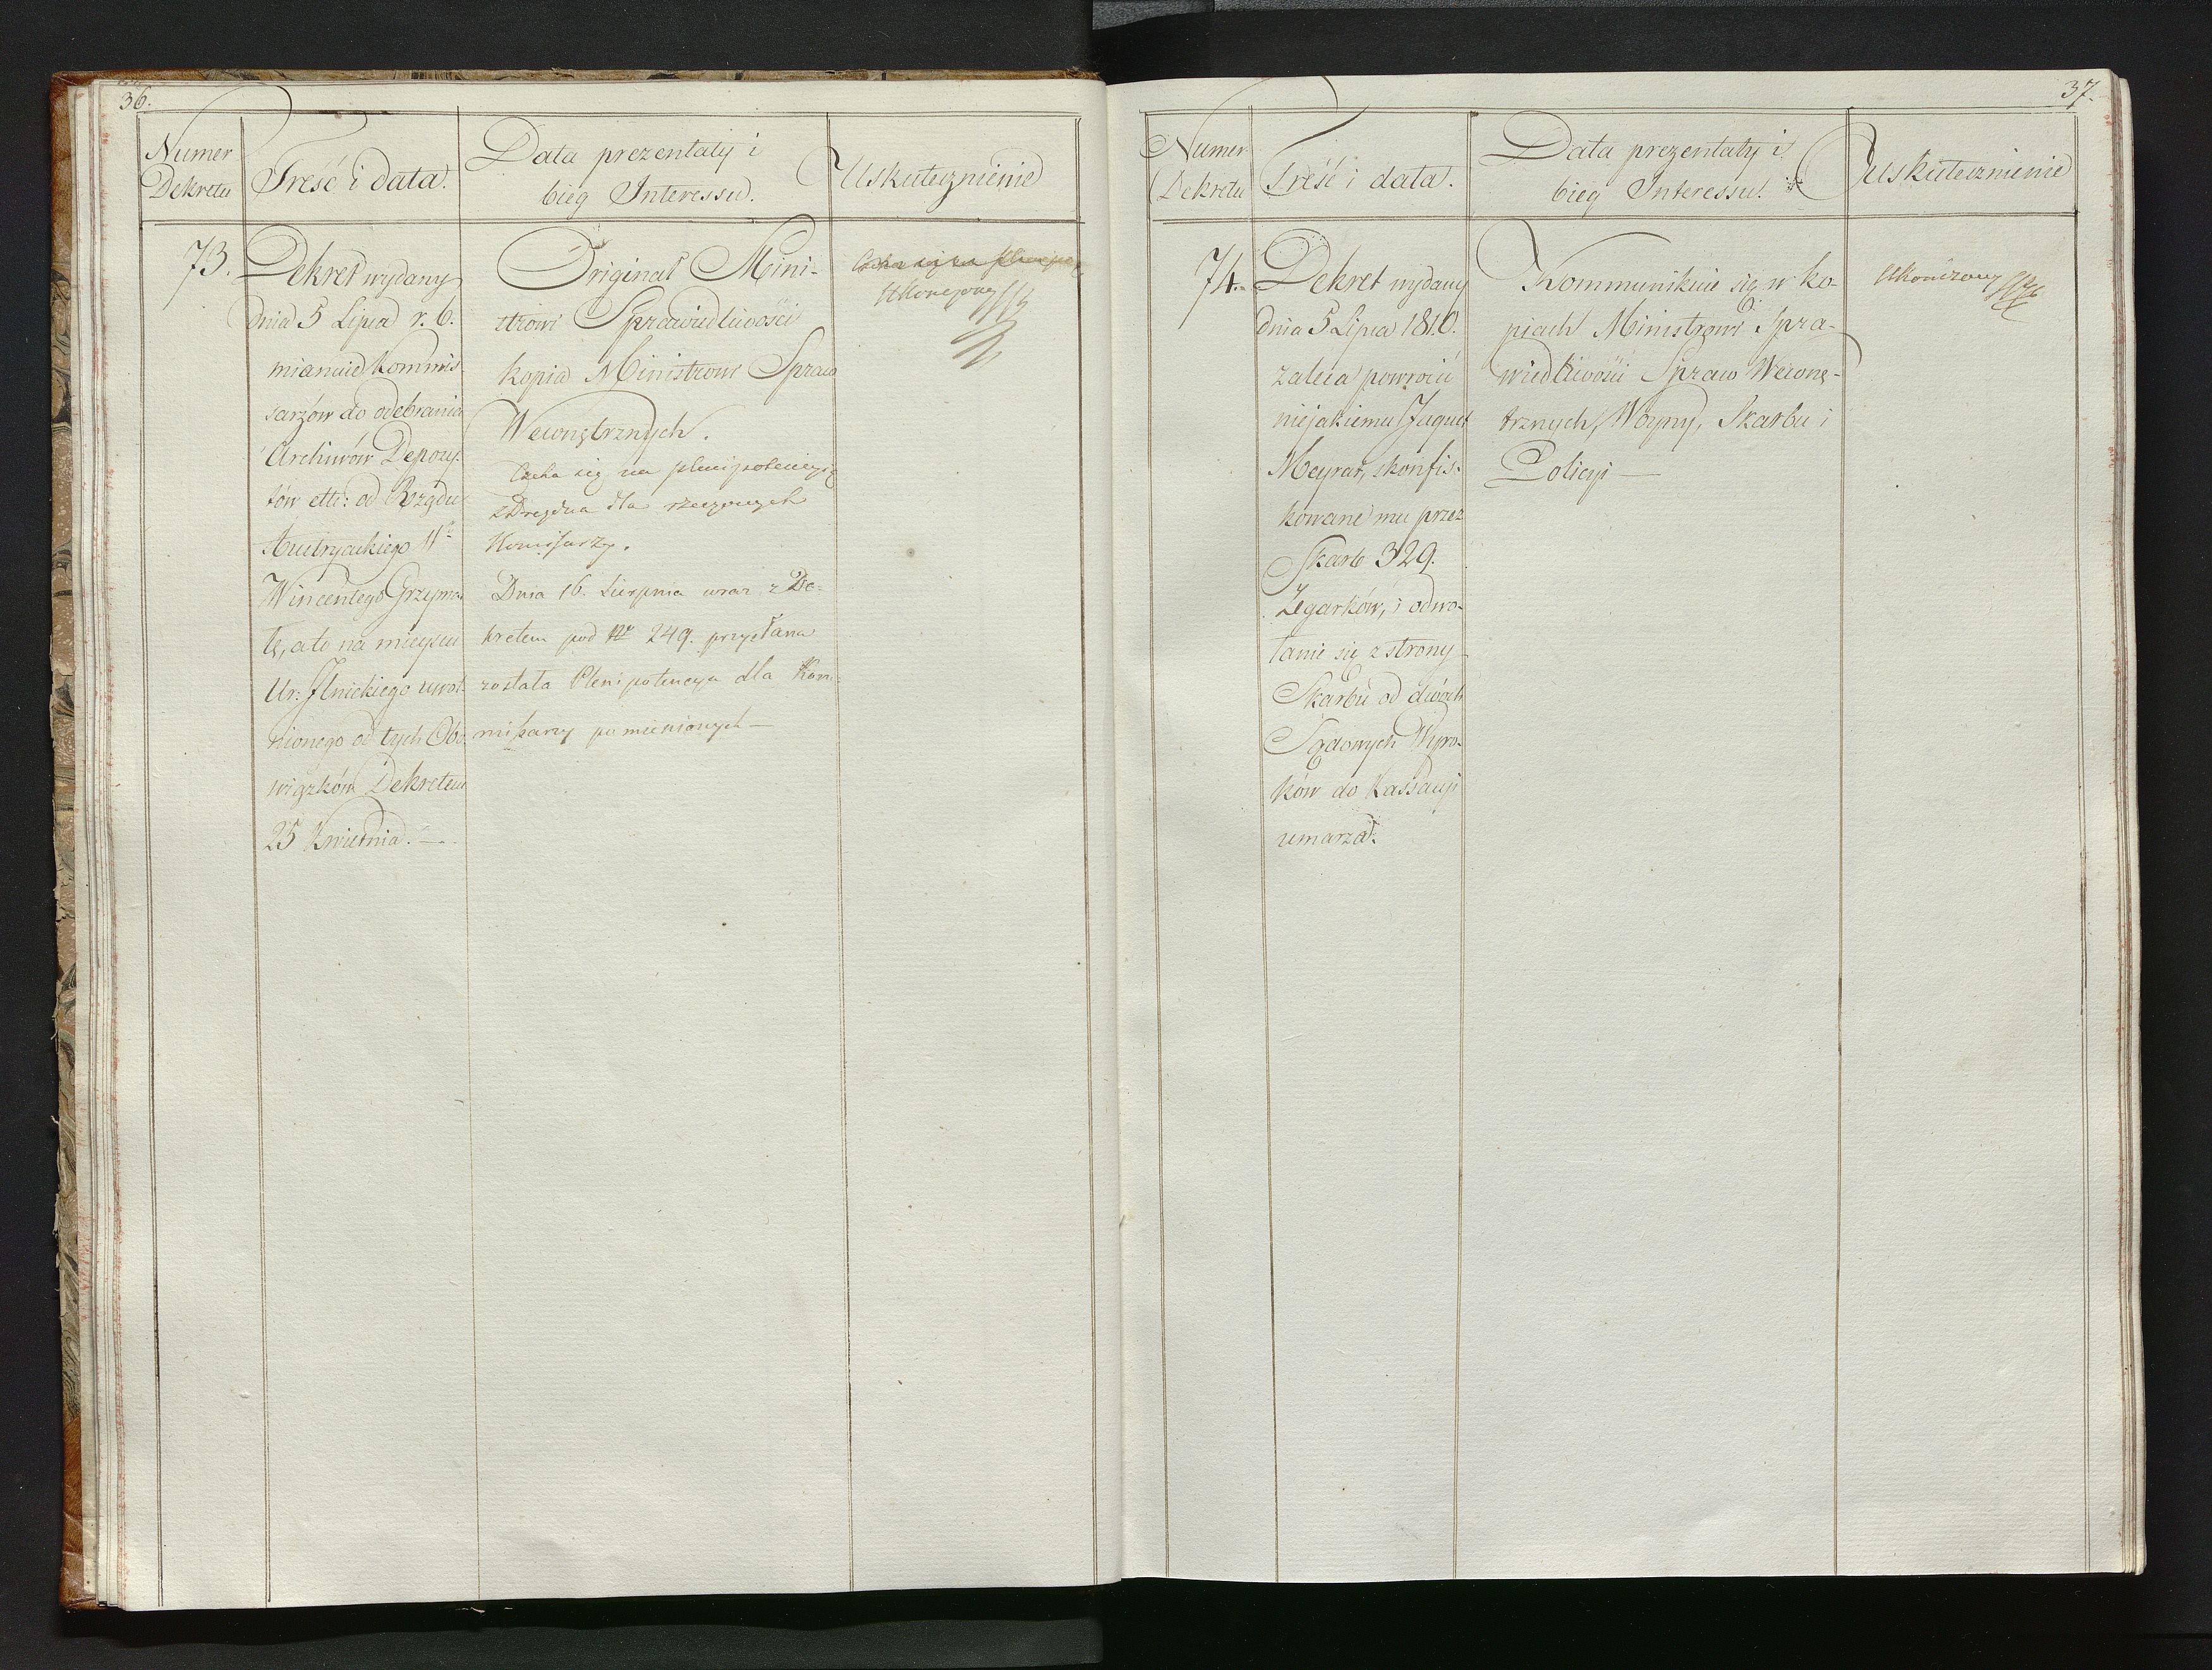 36.
Numer Dekretu
Treść i data.
Data prezentaty i
bieg Interessu.
Uskutecznienie
73.
Dekret wydany
dnia 5 Lipca r. b.
mianuie Kommis-
sarzów do odebrania
Archiwów Depozy-
tów ettc: od Rządu
Austryackiego
Wincentego Grzyma-
łę, a to na mieyscu
Ur: Ilnickiego uwol-
nionego od tych Obo-
wiązków Dekretem
25 Kwietnia. —
Originał Mini-
strowi Sprawiedliwości
kopia Ministrowi Spraw
Wewnętrznych.
Czeka się na plenipotencyię
z Drezdna dla rzeczonych
Komissarzy.
Dnia 16. Sierpnia wraz z De-
kretem pod Nr 249. przysłana
została Plenipotencya dla Kom-
missarzy pomienionych —
Czeka się na plenipo
Ukończony
37.
Numer Dekretu
Treść i data.
Data prezentaty i
bieg Interessu.
Uskutecznienie
74.
Dekret wydany
dnia 5 Lipca 1810.
zaleca powrócić
niejakiemu Jaques
Meyrat, skonfis-
kowane mu przez
Skarb 329.
Zegarków, i odwo-
łanie się z strony
Skarbu od dwóch
Sądowych Wyro-
ków do Kassacyi
umarza.
Kommunikuie się w ko-
piach Ministrowi Spra-
wiedliwości Spraw Wewnę-
trznych, Woyny, Skarbu i
Policyi —
Ukończony